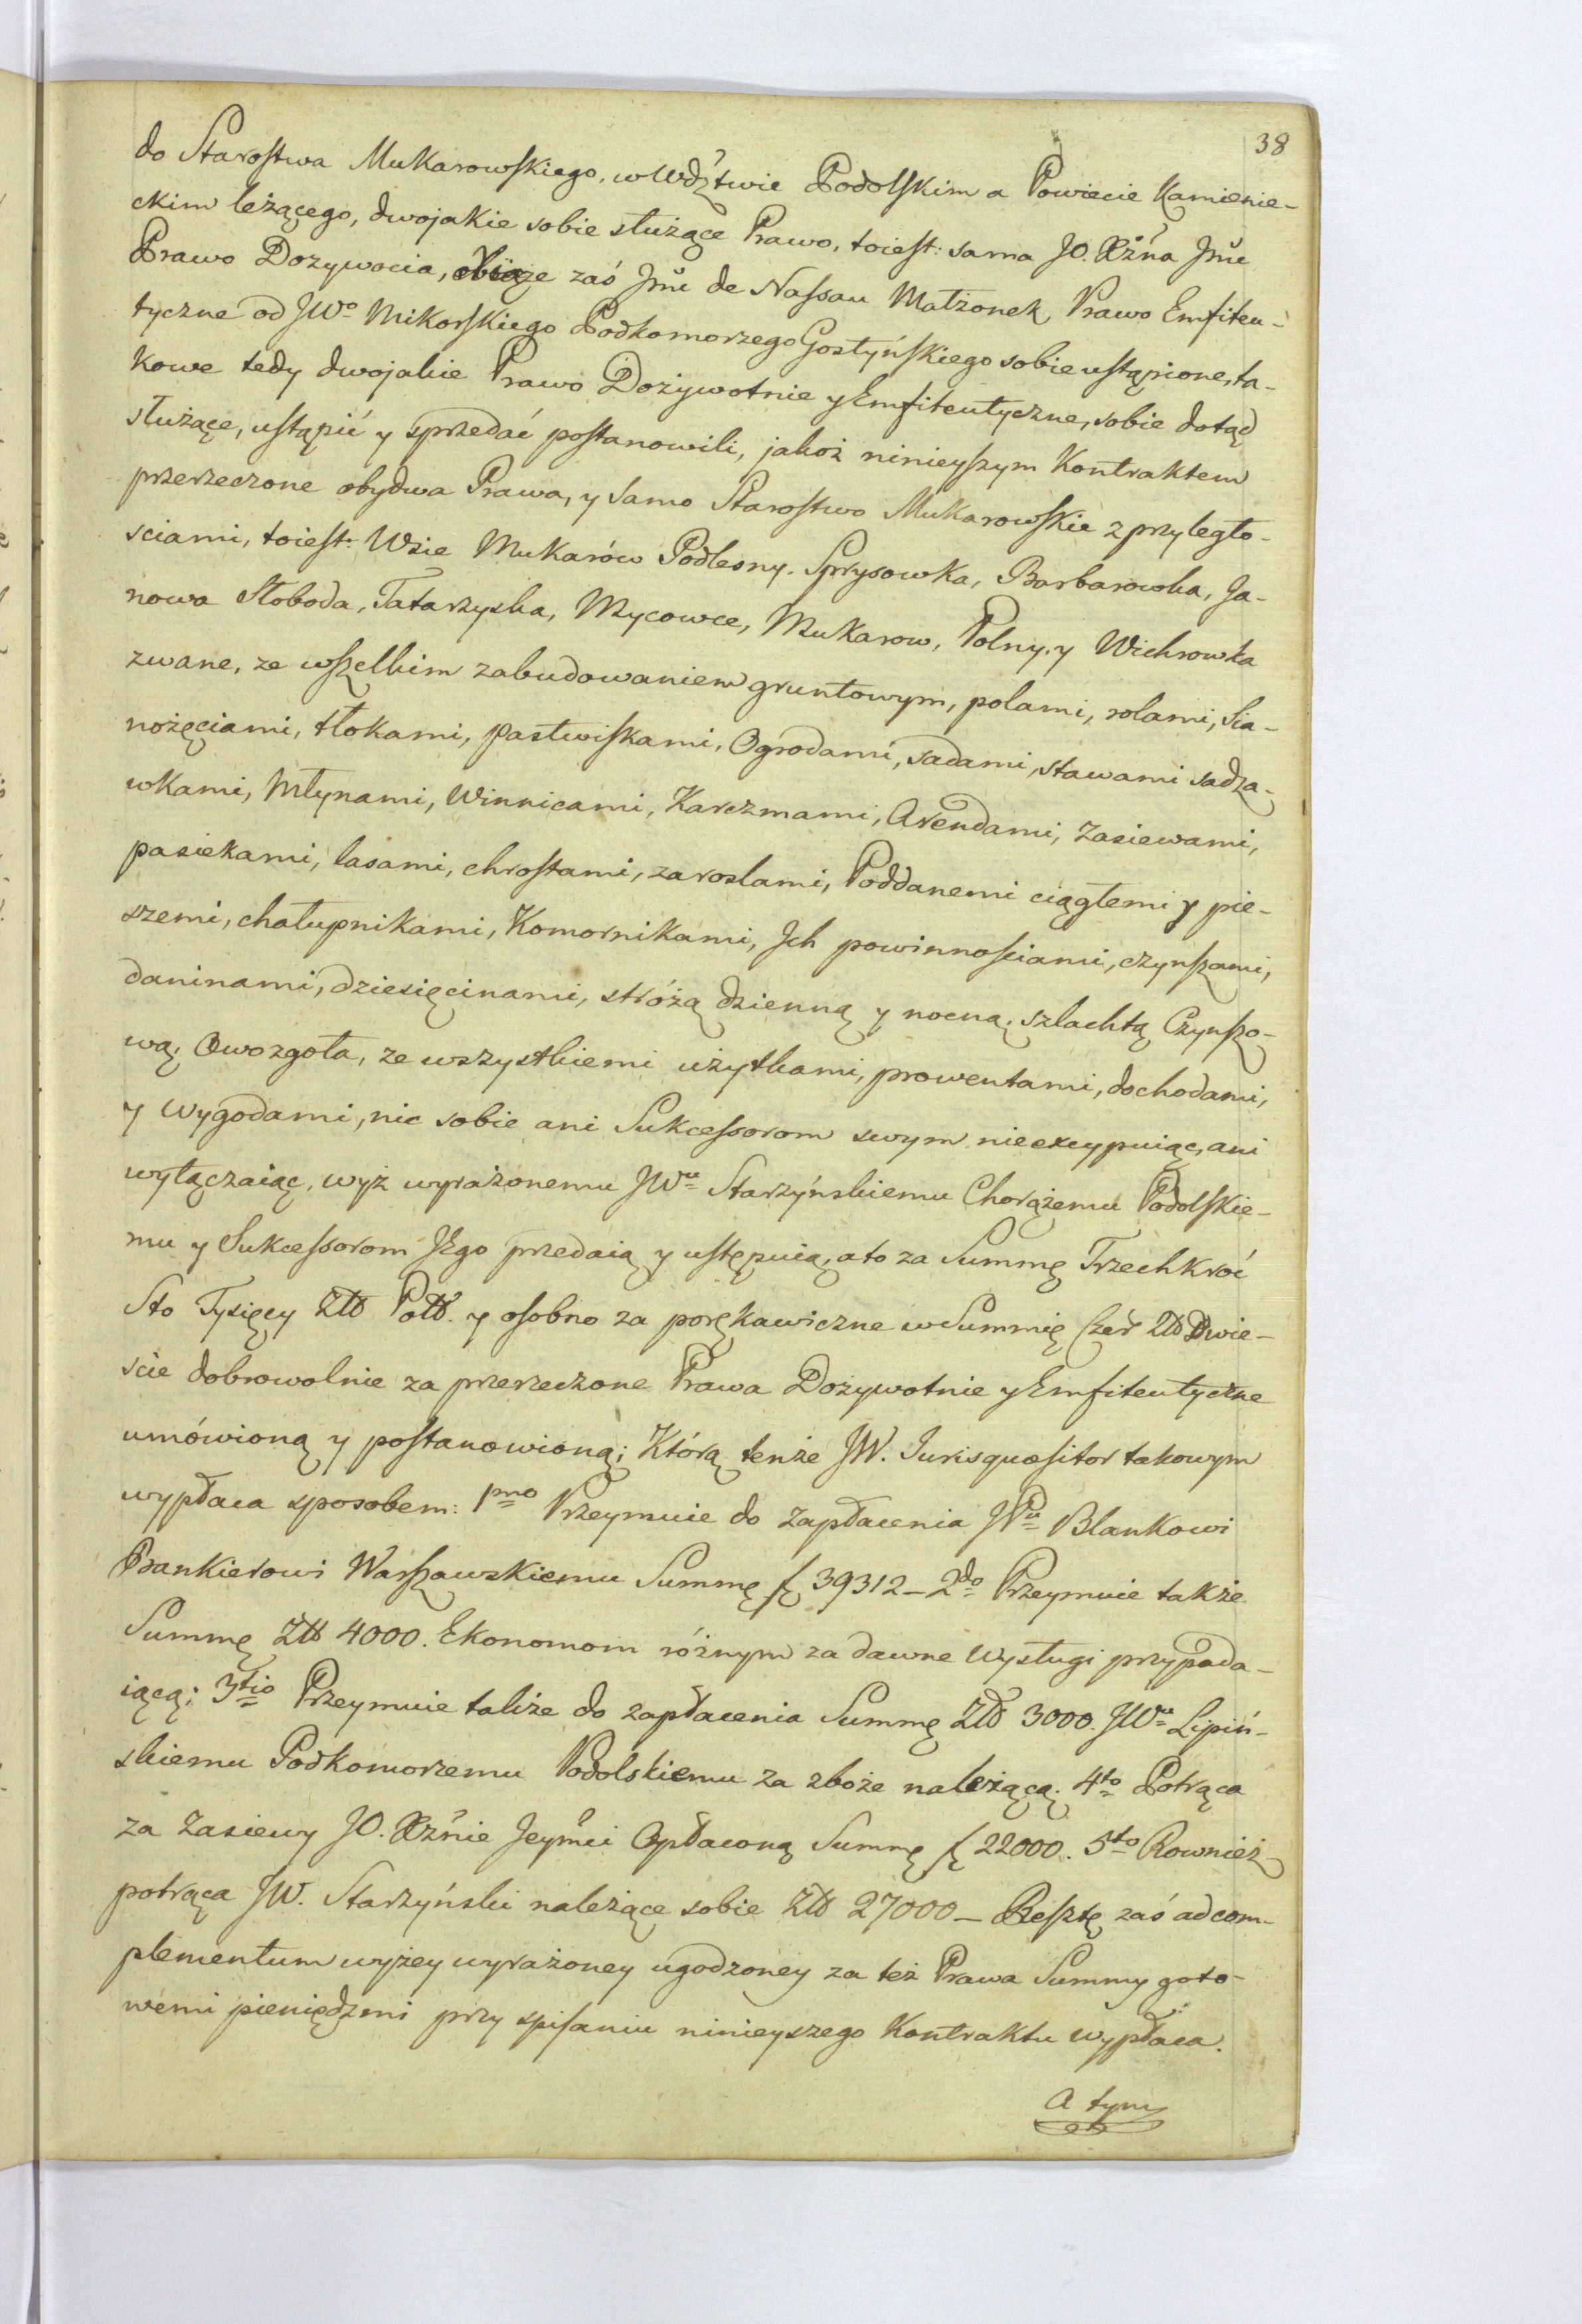 38
do Starostwa Mukarowskiego, w Wdztwie Podolskim a Powiecie Kamienie-
ckim leżącego, dwojakie sobie służące Prawo, toiest: sama JO. Xżna Jmć
Prawo Dozywocia, Xiąże zaś Jmć de Nassau Małżonek Prawo Emfiteu-
tyczne od JWo Mikorskiego Podkomorzego Gostyńskiego sobie ustąpione, ta-
kowe tedy dwojakie Prawo Dożywotnie y Emfiteutyczne, sobie dotąd
służące, ustąpić y sprzedać postanowili, jakoż ninieyszym Kontraktem
przerzeczone obydwa Prawa, y samo Starostwo Mukarowskie z przyległo-
sciami, toiest: Wsie Mukarów Podlesny, Sprysowka, Barbarowka, Ja-
nowa Słoboda, Tatarzyska, Mycowce, Mukarow, Polny, y Wichrowka
zwane, ze wszelkim zabudowaniem gruntowym, polami, rolami, Sia-
nożęciami, tłokami, pastwiskami, Ogrodami, sadami, stawami sadza-
wkami, Młynami, Winnicami, Karczmami, Arendami, Zasiewami,
pasiekami, lasami, chrostami, zaroslami, Poddanemi ciągłemi y pie-
szemi, chałupnikami, Komornikami, Jch powinnościami, czynszami,
daninami, dziesięcinami, stróżą dzienną y nocną, szlachtą Czynszo-
wą; Owozgoła, ze wszystkiemi użytkami, prowentami, dochodami,
y Wygodami, nic sobie ani Sukcessorom swym nieexcypuiąc, ani
wyłączaiąc, wyż wyrażonemu JWu Starzyńskiemu Chorążemu Podolskie-
mu y Sukcessorom Jego przedaią y ustępuią, a to za Summę Trzechkroć
Sto Tysięcy Złł Poll. y osobno za porękawiczne w Summię Czer Złł Dwie-
scie dobrowolnie za przerzeczone Prawa Dożywotnie y Emfiteutyczne
umówioną y postanowioną; Którą tenże JW. Jurisquæsitor takowym
wypłaca sposobem: 1mo Przeymuie do Zapłacenia JPu Blankowi
Bankierowi Warszawskiemu Summę f 39312 _ 2do Przeymuie także
Summę Złł 4000. Ekonomom różnym za dawne Wysługi przypada-
iącą; 3tio Przeymuie także do zapłacenia Summę Złł 3000. JWu Lipiń-
skiemu Podkomorzemu Podolskiemu za zboże należącą; 4to Potrąca
za Zasiewy JO. Xżnie Jeymci Opłaconą Summę f 22000. 5to Rownież
potrąca JW. Starzyński należące sobie Złł 27000 _ Resztę zaś ad com-
plementum wyżey wyrażoney ugodzoney za też Prawa Summy goto-
wemi pieniędzmi przy spisaniu ninieyszego Kontraktu wypłaca.
A tym